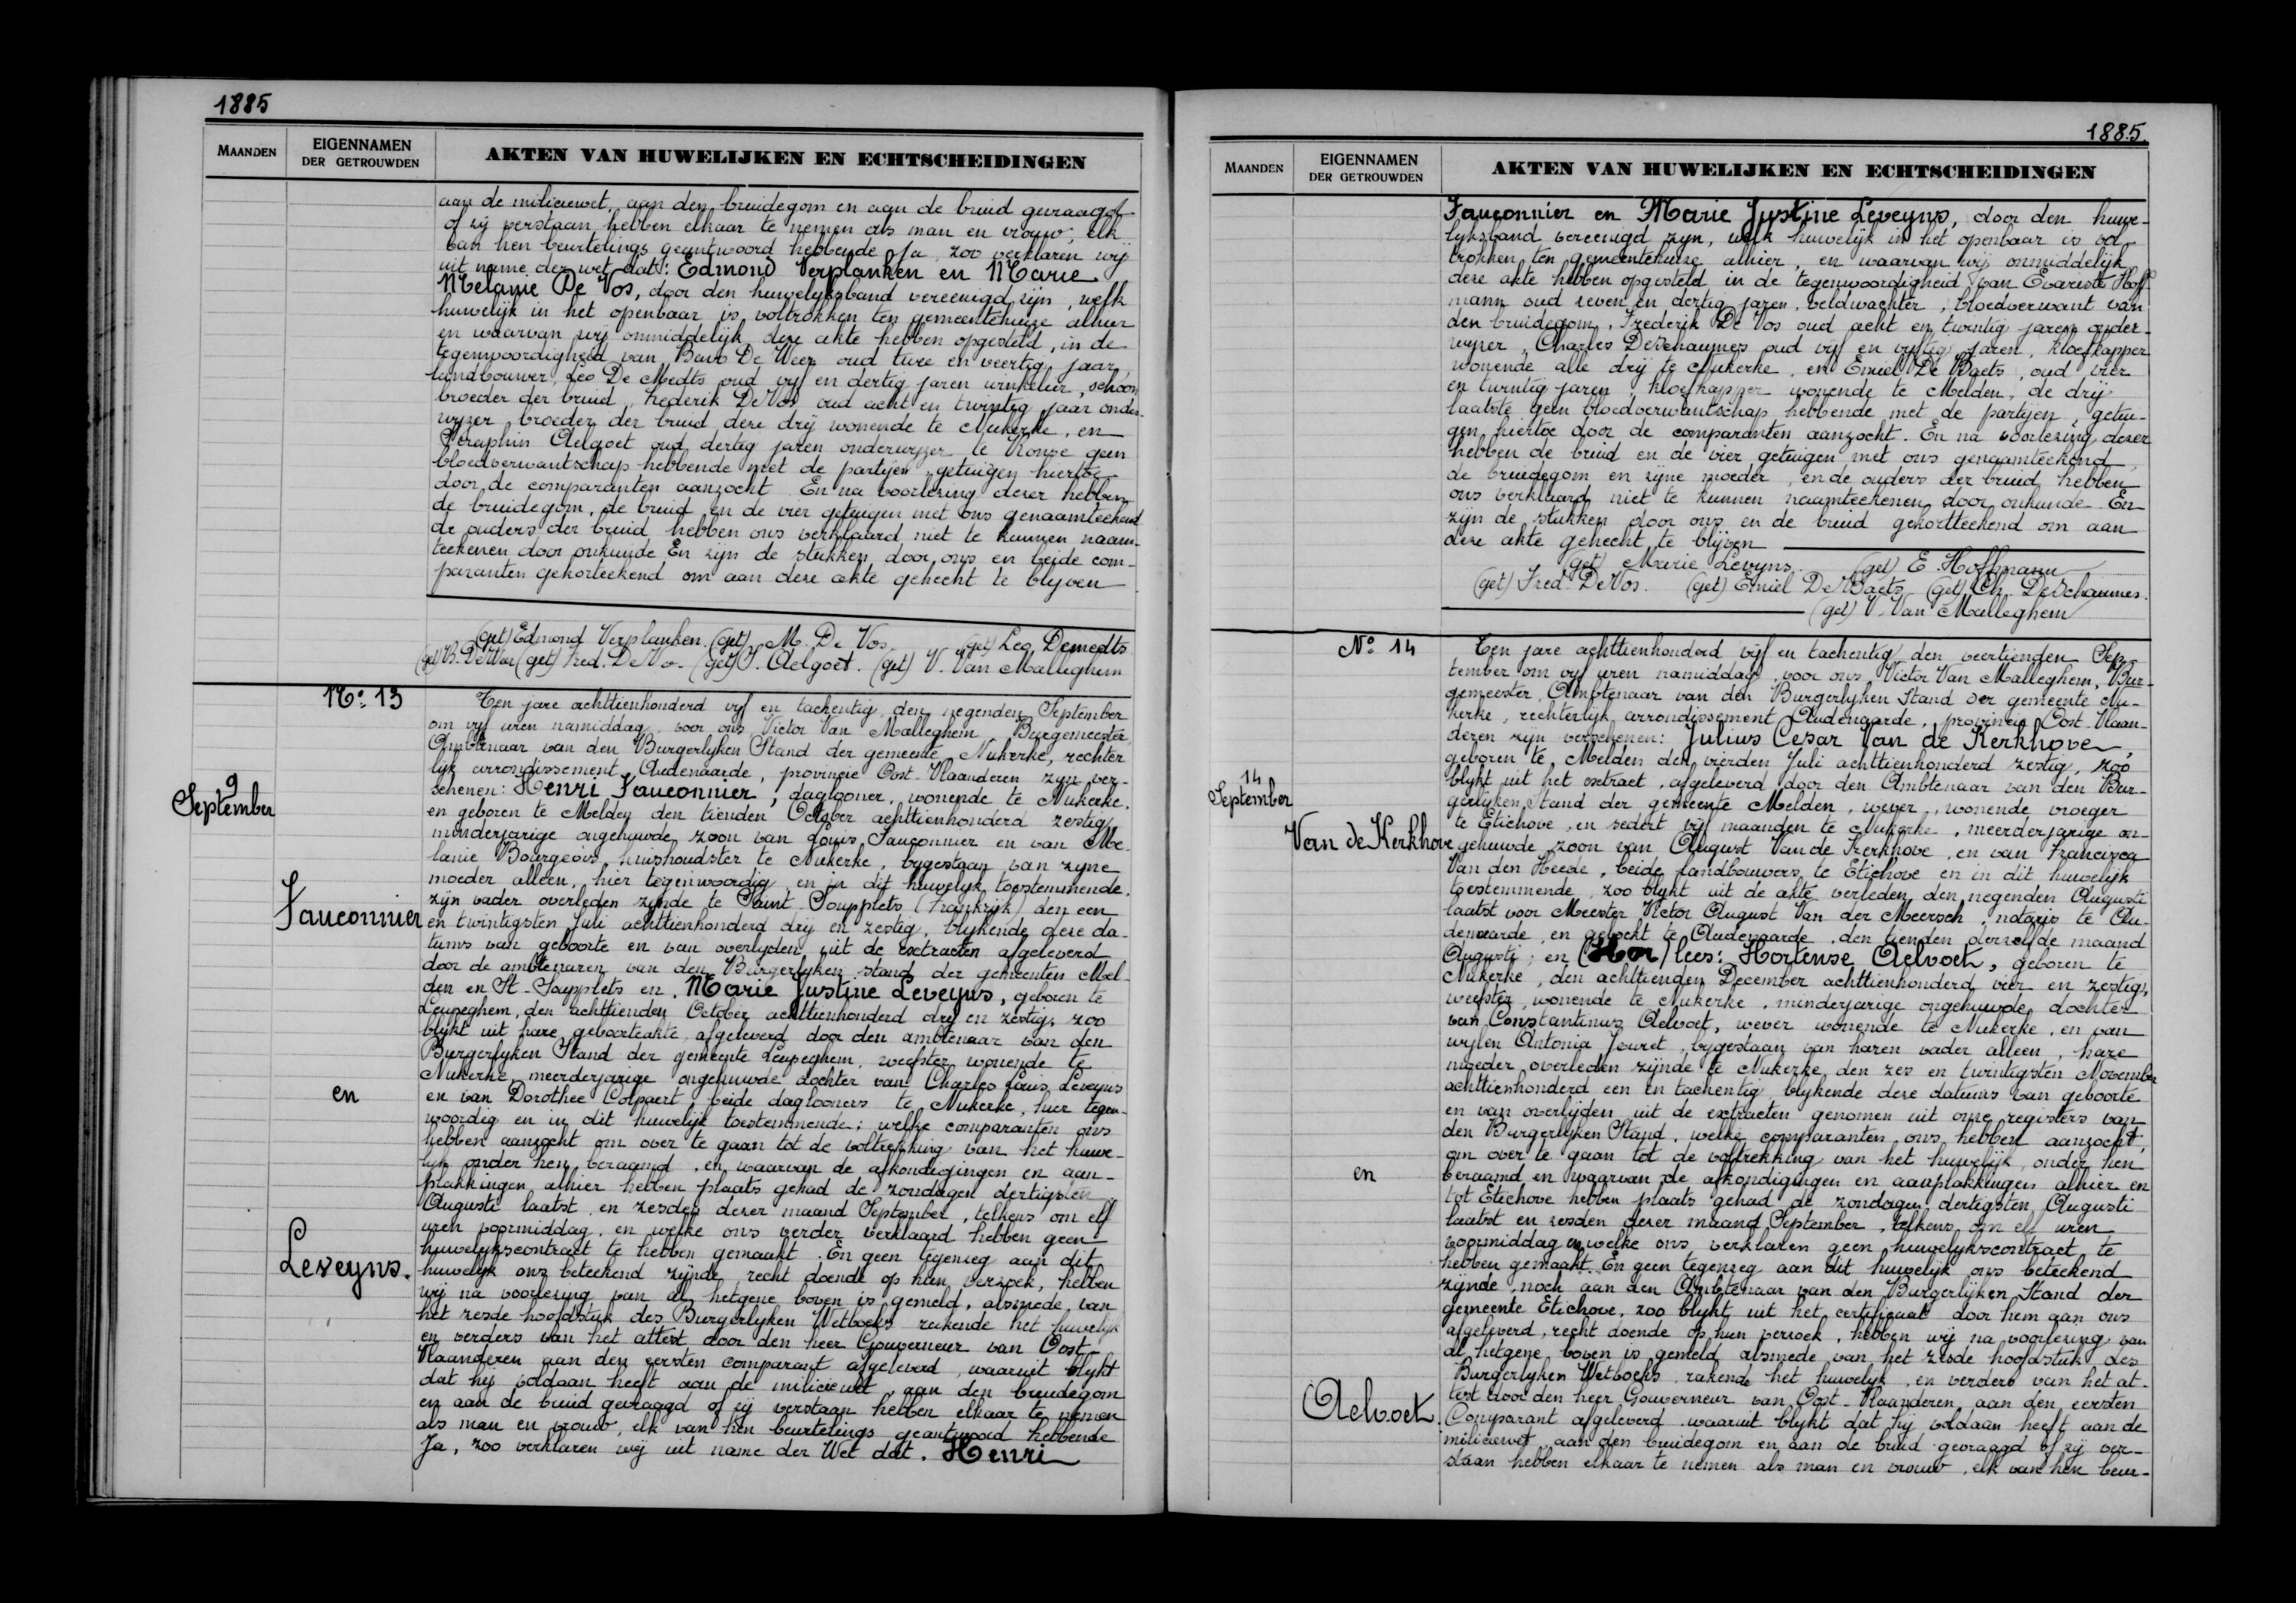 1885
MAANDEN
EIGENNAMEN
DER GETROUWDEN
AKTEN VAN HUWELIJKEN EN ECHTSCHEIDINGEN
aan de miliciewet, aan den bruidegom en aan de bruid gevraagd
of zij verstaan hebben elkaar te nemen als man en vrouw; elk
van hen beurtelings geantwoord hebbende Ja, zoo verklaren wij
uit name der wet dat: Edmond Verplanken en Marie
Melanie De Vos, door den huwelyksband vereenigd zijn, welk
huwelijk in het openbaar is voltrokken ten gemeentehuize alhier
en waarvan wij onmiddelijk deze akte hebben opgesteld, in de
tegenwoordigheid van Bavo De Weer oud twee en veertig jaar,
landbouwer, Leo De Medts oud vyf en dertig jaren winkelier, schoon
broeder der bruid, Frederik De Vos oud acht en twintig jaar onder-
wyzer broeder der bruid, deze dry wonende te Nukerke, en
Seraphin Aelgoet oud dertig jaren onderwyzer te Ronse geen
bloedverwantschap hebbende met de partijen, getuigen hiertoe
door de comparanten aanzocht. En na voorlezing dezer hebben
de bruidegom, de bruid en de vier getuigen met ons genaamteekend
de ouders der bruid hebben ons verklaard niet te kunnen naam-
teekenen door onkunde En zijn de stukken door ons en beide com-
paranten gekorteekend om aan deze akte gehecht te blijven
(get) Edmond Verplanken. (get) M. De Vos. (get) Leo Demedts
(get) B. De Weer (get) Fred. De Vos. (get) S. Aelgoet. (get) V. Van Malleghem
No: 13
9
September
Fauconnier
en
Leveyns.
Ten jare achttienhonderd vyf en tachentig, den negenden September
om vyf uren namiddag, voor ons Victor Van Malleghem, Burgemeester,
Ambtenaar van den Burgerlyken Stand der gemeente Nukerke, rechter
lijk arrondissement Audenaarde, provincie Oost-Vlaanderen zyn ver-
schenen: Henri Fauconnier, daglooner, wonende te Nukerke,
en geboren te Melden den tienden October achttienhonderd zestig,
minderjarige ongehuwde zoon van Louis Fauconnier en van Me-
lanie Bourgeois, huishoudster te Nukerke, bygestaan van zyne
moeder alleen, hier tegenwoordig en in dit huwelyk toestemmende,
zijn vader overleden zynde te Saint-Soupplets (Frankrijk) den een
en twintigsten Juli achttienhonderd drij en zestig, blykende deze da-
tums van geboorte en van overlyden uit de extracten afgeleverd
door de ambtenaren van den Burgerlyken stand der gemeenten Mel-
den en St-Soupplets en, Marie Justine Leveyns, geboren te
Leupeghem, den achttienden October achttienhonderd dry en zestig, zoo
blykt uit hare geboorteakte afgeleverd door den ambtenaar van den
Burgerlyken Stand der gemeente Leupeghem, weefster wonende te
Nukerke, meerderjarige ongehuwde dochter van Charles Louis Leveyns
en van Dorothee Colpaert, beide daglooners te Nukerke, hier tegen-
woordig en in dit huwelijk toestemmende; welke comparanten ons
hebben aanzocht om over te gaan tot de voltrekking van het huwe-
lijk onder hen beraamd, en waarvan de afkondigingen en aan-
plakkingen alhier hebben plaats gehad de zondagen dertigsten
Augusti laatst, en zesden dezer maand September, telkens om elf
uren voormiddag, en welke ons verder verklaard hebben geen
huwelykscontract te hebben gemaakt. En geen tegenzeg aan dit
huwelyk ons beteekend zijnde, recht doende op hun verzoek, hebben
wij na voorlezing van al hetgene boven is gemeld, alsmede van
het zesde hoofdstuk des Burgerlyken Wetboeks rakende het huwelyk
en verders van het attest door den heer Gouverneur van Oost-
Vlaanderen aan den eersten comparant afgeleverd, waaruit blykt
dat hij voldaan heeft aan de miliciewet, aan den bruidegom
en aan de bruid gevraagd of zij verstaan hebben elkaar te nemen
als man en vrouw, elk van hen beurtelings geantwoord hebbende
Ja, zoo verklaren wij uit name der Wet dat. Henri
1885.
MAANDEN
EIGENNAMEN
DER GETROUWDEN
AKTEN VAN HUWELIJKEN EN ECHTSCHEIDINGEN
Fauconnier en Marie Justine Leveyns, door den huwe-
lyksband vereenigd zyn, welk huwelijk in het openbaar is vol-
trokken ten gemeentehuize alhier, en waarvan wij onmiddelijk
deze akte hebben opgesteld in de tegenwoordigheid van Evariste Hoff-
mann oud zeven en dertig jaren, veldwachter, bloedverwant van
den bruidegom, Frederik De Vos oud acht en twintig jaren onder-
wyzer, Charles Deschaumes oud vijf en vyftig jaren, kloefkapper
wonende alle drij te Nukerke, en Emiel De Baets, oud vier
en twintig jaren, kloefkapper wonende te Melden, de drij
laatste geen bloedverwantschap hebbende met de partijen, getui-
gen hiertoe door de comparanten aanzocht. En na voorlezing dezer
hebben de bruid en de vier getuigen met ons genaamteekend,
de bruidegom en zijne moeder, en de ouders der bruid hebben
ons verklaard niet te kunnen naamteekenen door onkunde. En
zijn de stukken door ons en de bruid gekortteekend om aan
deze akte gehecht te blijven
(get) Marie Leveyns. (get) E. Hoffmann
(get) Fred. De Vos. (get) Emiel De Baets (get) Ch. Deschaumes.
(get) V. Van Malleghem
No: 14
14
September
Van de Kerkhove
en
Aelvoet.
Ten jare achttienhonderd vijf en tachentig den veertienden Sep-
tember om vyf uren namiddag, voor ons Victor Van Malleghem, Bur-
gemeester, Ambtenaar van den Burgerlyken Stand der gemeente Nu-
kerke, rechterlijk arrondissement Audenaarde, provincie Oost-Vlaan-
deren zyn verschenen: Julius Cesar Van de Kerkhove,
geboren te Melden den vierden Juli achttienhonderd zestig, zoo
blykt uit het extract, afgeleverd door den Ambtenaar van den Bur-
gerlyken Stand der gemeente Melden, wever, wonende vroeger
te Etichove, en sedert vijf maanden te Nukerke, meerderjarige on-
gehuwde zoon van August Van de Kerkhove, en van Francisca
Van den Heede, beide landbouwers te Etichove en in dit huwelijk
toestemmende, zoo blykt uit de akte verleden den negenden Augusti
laatst voor Meester Victor August Van der Meersch, notaris te Au-
denaarde, en geboekt te Audenaarde, den tienden derzelfde maand
Augusti; en (Hor) lees: Hortense Aelvoet, geboren te
Nukerke, den achttienden December achttienhonderd vier en zestig,
weefster, wonende te Nukerke, minderjarige ongehuwde dochter
van Constantinus Aelvoet, wever wonende te Nukerke, en van
wylen Antonia Jouret, bygestaan van haren vader alleen, hare
moeder overleden zijnde te Nukerke den zes en twintigsten November
achttienhonderd een en tachentig blykende deze datums van geboorte
en van overlijden uit de extracten genomen uit onze registers van
den Burgerlyken Stand, welke comparanten ons hebben aanzocht,
om over te gaan tot de voltrekking van het huwelijk, onder hen
beraamd en waarvan de afkondigingen en aanplakkingen alhier en
tot Etichove hebben plaats gehad de zondagen dertigsten Augusti
laatst en zesden dezer maand September, telkens om elf uren
voormiddag en welke ons verklaren geen huwelykscontract te
hebben gemaakt. En geen tegenzeg aan dit huwelijk ons beteekend
zijnde, noch aan den Ambtenaar van den Burgerlijken Stand der
gemeente Etichove, zoo blykt uit het certificaat door hem aan ons
afgeleverd, recht doende op hun verzoek, hebben wij na voorlezing van
al hetgene boven is gemeld alsmede van het zesde hoofdstuk des
Burgerlyken Wetboeks rakende het huwelijk, en verders van het at-
test door den heer Gouverneur van Oost-Vlaanderen, aan den eersten
Comparant afgeleverd waaruit blykt dat hij voldaan heeft aan de
miliciewet aan den bruidegom en aan de bruid gevraagd of zij ver-
staan hebben elkaar te nemen als man en vrouw, elk van hen beur-